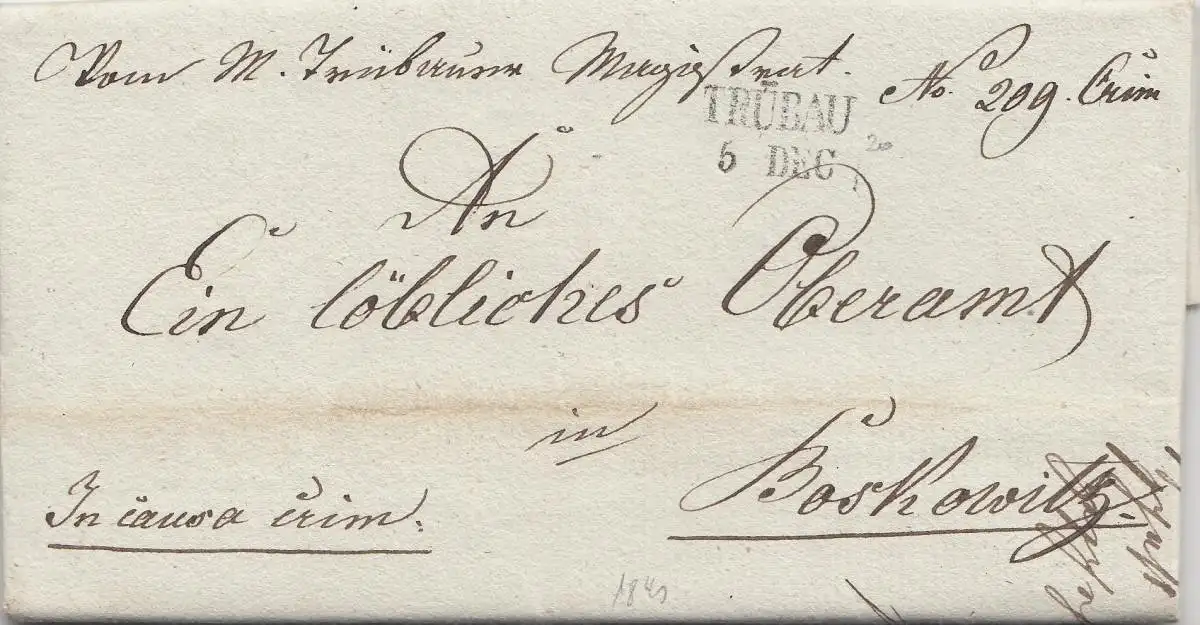 Vom M. Trübauer Magistrat. No. 209. Crim
TRÜBAU
5 DEC
An
Ein löbliches Oberamt
in
Boskowitz.
In causa crim: